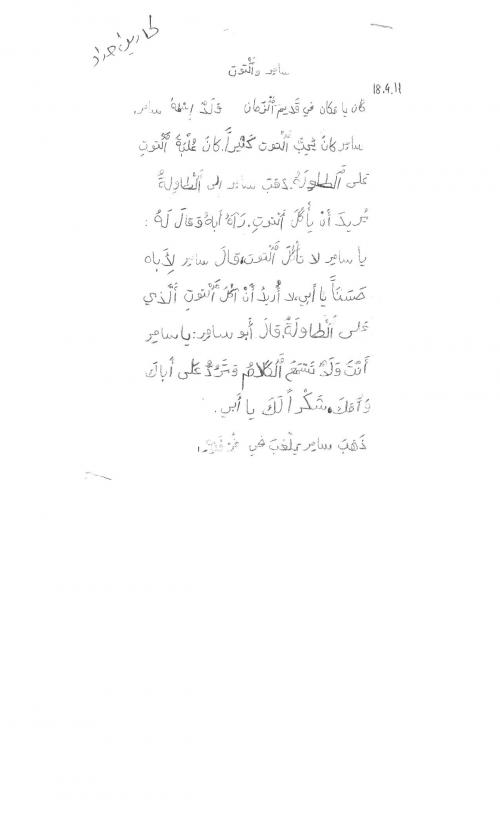 سامر والْتوت
18.4.11
كان يا مكان في قَديم الْزمان وَلَدٌ إسْمهُ سامر.
سامر كانَ يُحِبُّ الْتوت كَثيراً. كانَ عُلْبَةُ الْتوتِ
عَلى الْطاوِلَةِ. ذهَبَ سامر الى الْطاوِلةُ
يُريدَ أنْ يأكُلَ التوتِ. رَآهُ أباهُ وَقالَ لَهُ :
يا سامر لا تأكُلَ الْتوت. قالَ سامر لِأباه
حَسَناً يا أبي، لا أُريدُ أنْ آكُلَ الْتوتِ الَّذي
عَلى الْطاوِلَةُ. قالَ أبو سامر: يا سامر
أنْتَ وَلَدٌ تَسْمَعُ الْكَلامُ وَتَرُدُّ عَلى أباكَ
وَأمِكَ. شُكْراً لَكَ يا أبي.
ذَهَبَ سامر يلْعَبَ في غُرْفَتِهِ.